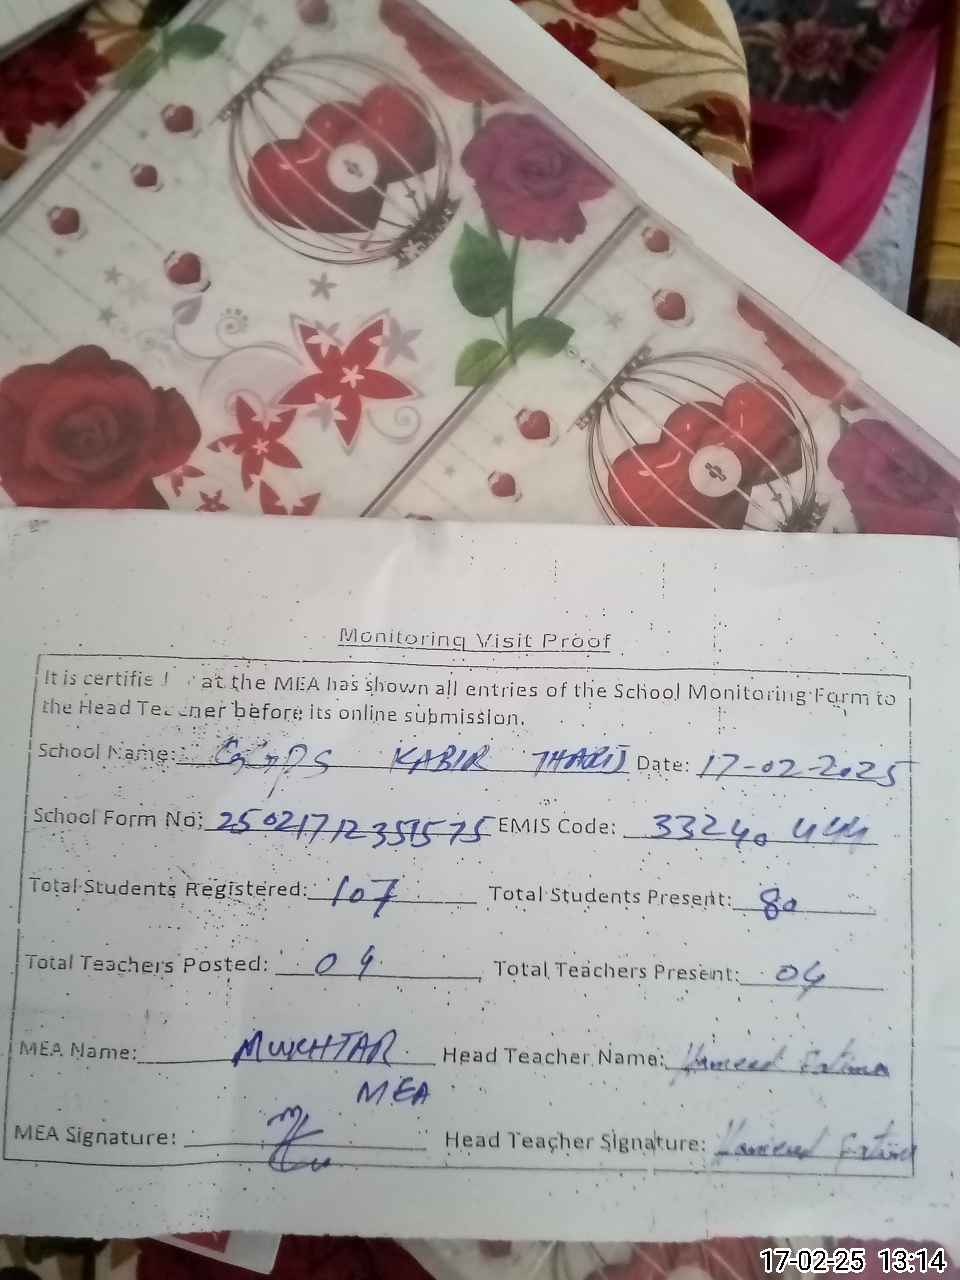 Monitoring Visit Proof
It is certified that the MEA has shown all entries of the School Monitoring Form to
the Head Teacher before its online submission.
School Name: KABIR THARIJ Date: 17-02-2025
School Form No: 250217123515 75 EMIS Code: 33240444
Total Students Registered: 107 Total Students Present: 80
Total Teachers Posted: 04 Total Teachers Present: 04
MEA Name: MUKHTAR Head Teacher Name: Hameed Fatima
MEA
MEA Signature: Head Teacher Signature: Hameed Fatima
17-02-25 13:14